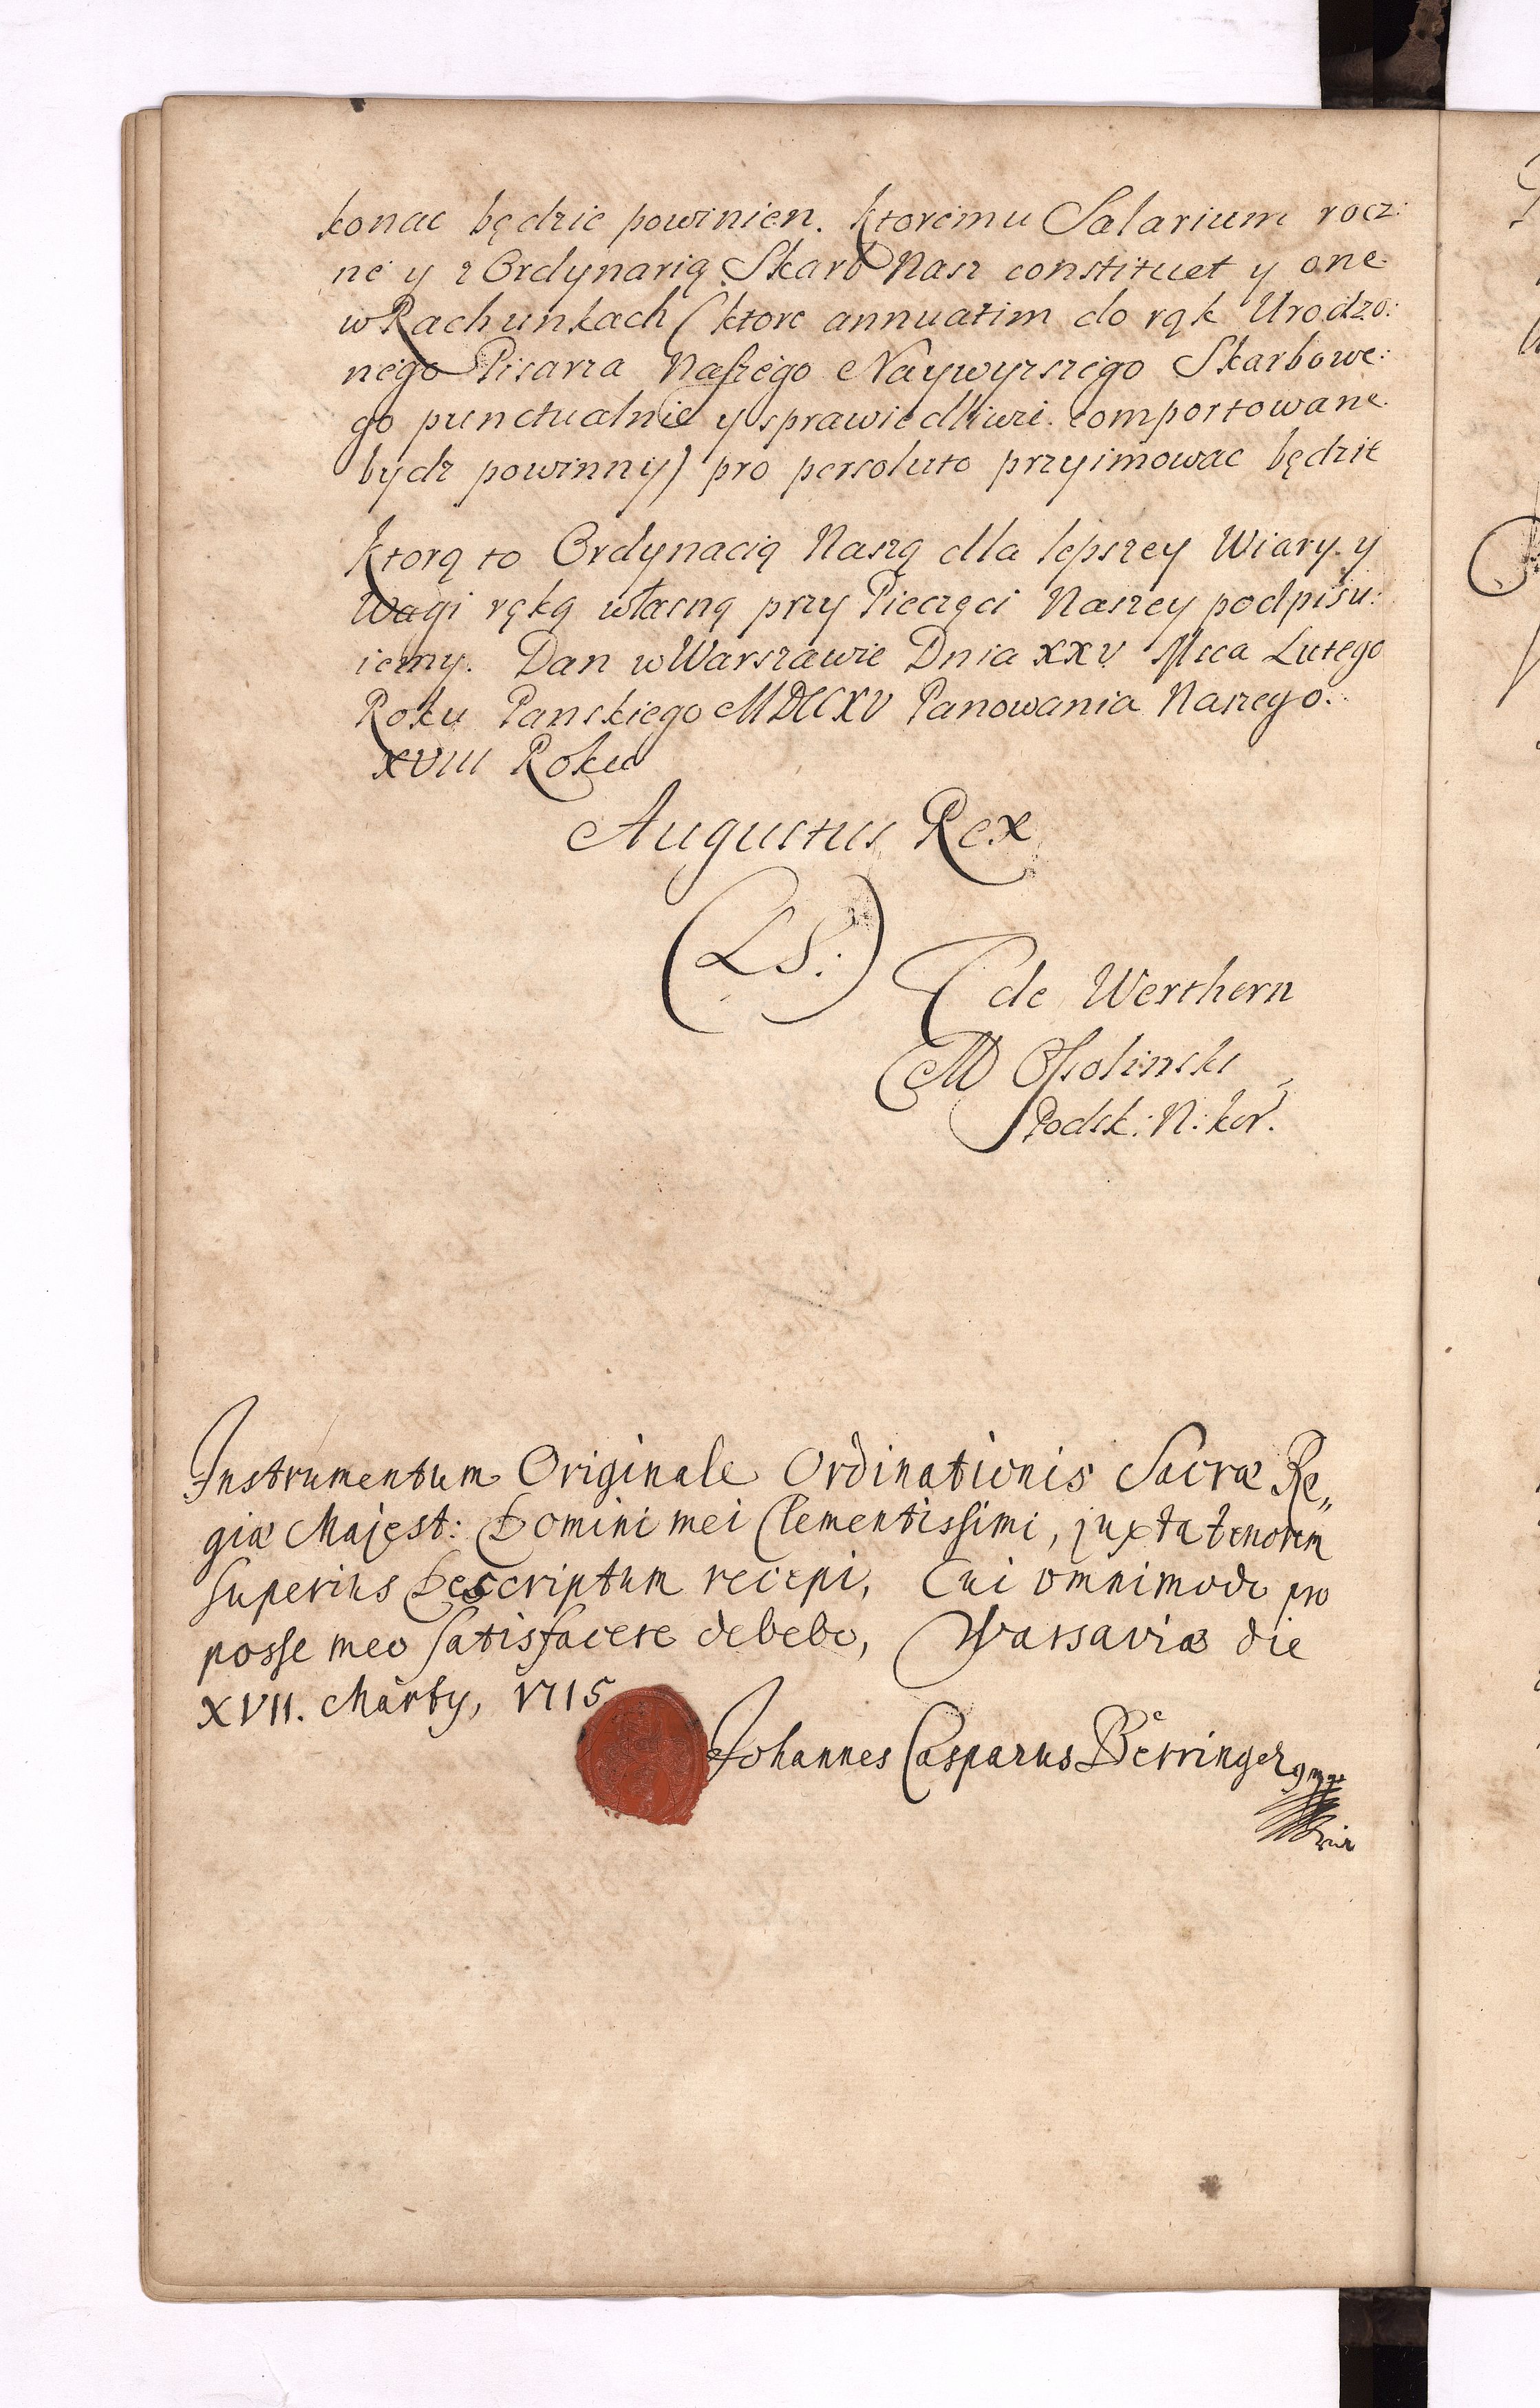 konac będzie powinien. Ktoremu Salarium rocz:
ne y z Ordynarią Skarb Nasz constituet y one
w Rachunkach (ktore annuatim do rąk Urodzo:
nego Pisarza Naszego Naywyzszego Skarbowe:
go punctualnie y sprawiedliwie comportowane
bydz powinny) pro persoluto przyimowac będzie
Ktorą to Ordynacią Naszą dla lepszey Wiary y
Wagi ręką własną przy Pieczęci Naszey podpisu:
iemy. Dan w Warszawie Dnia XXV Mca Lutego
Roku Panskiego MDCCXV Panowania Naszego
XVIII Roku
Augustus Rex
(LS:)
G de Werthern
M Ossolinski
Podsk: N: kor.
Instrumentum Originale Ordinationis Sacræ Re„
giæ Majest: Domini mei Clementissimi, juxta tenorem
superius Descriptum recepi, Cui omnimode pro
posse meo satisfacere debebo, Warsaviæ die
XVII. Marty, 1715
Johannes Casparus Berringer